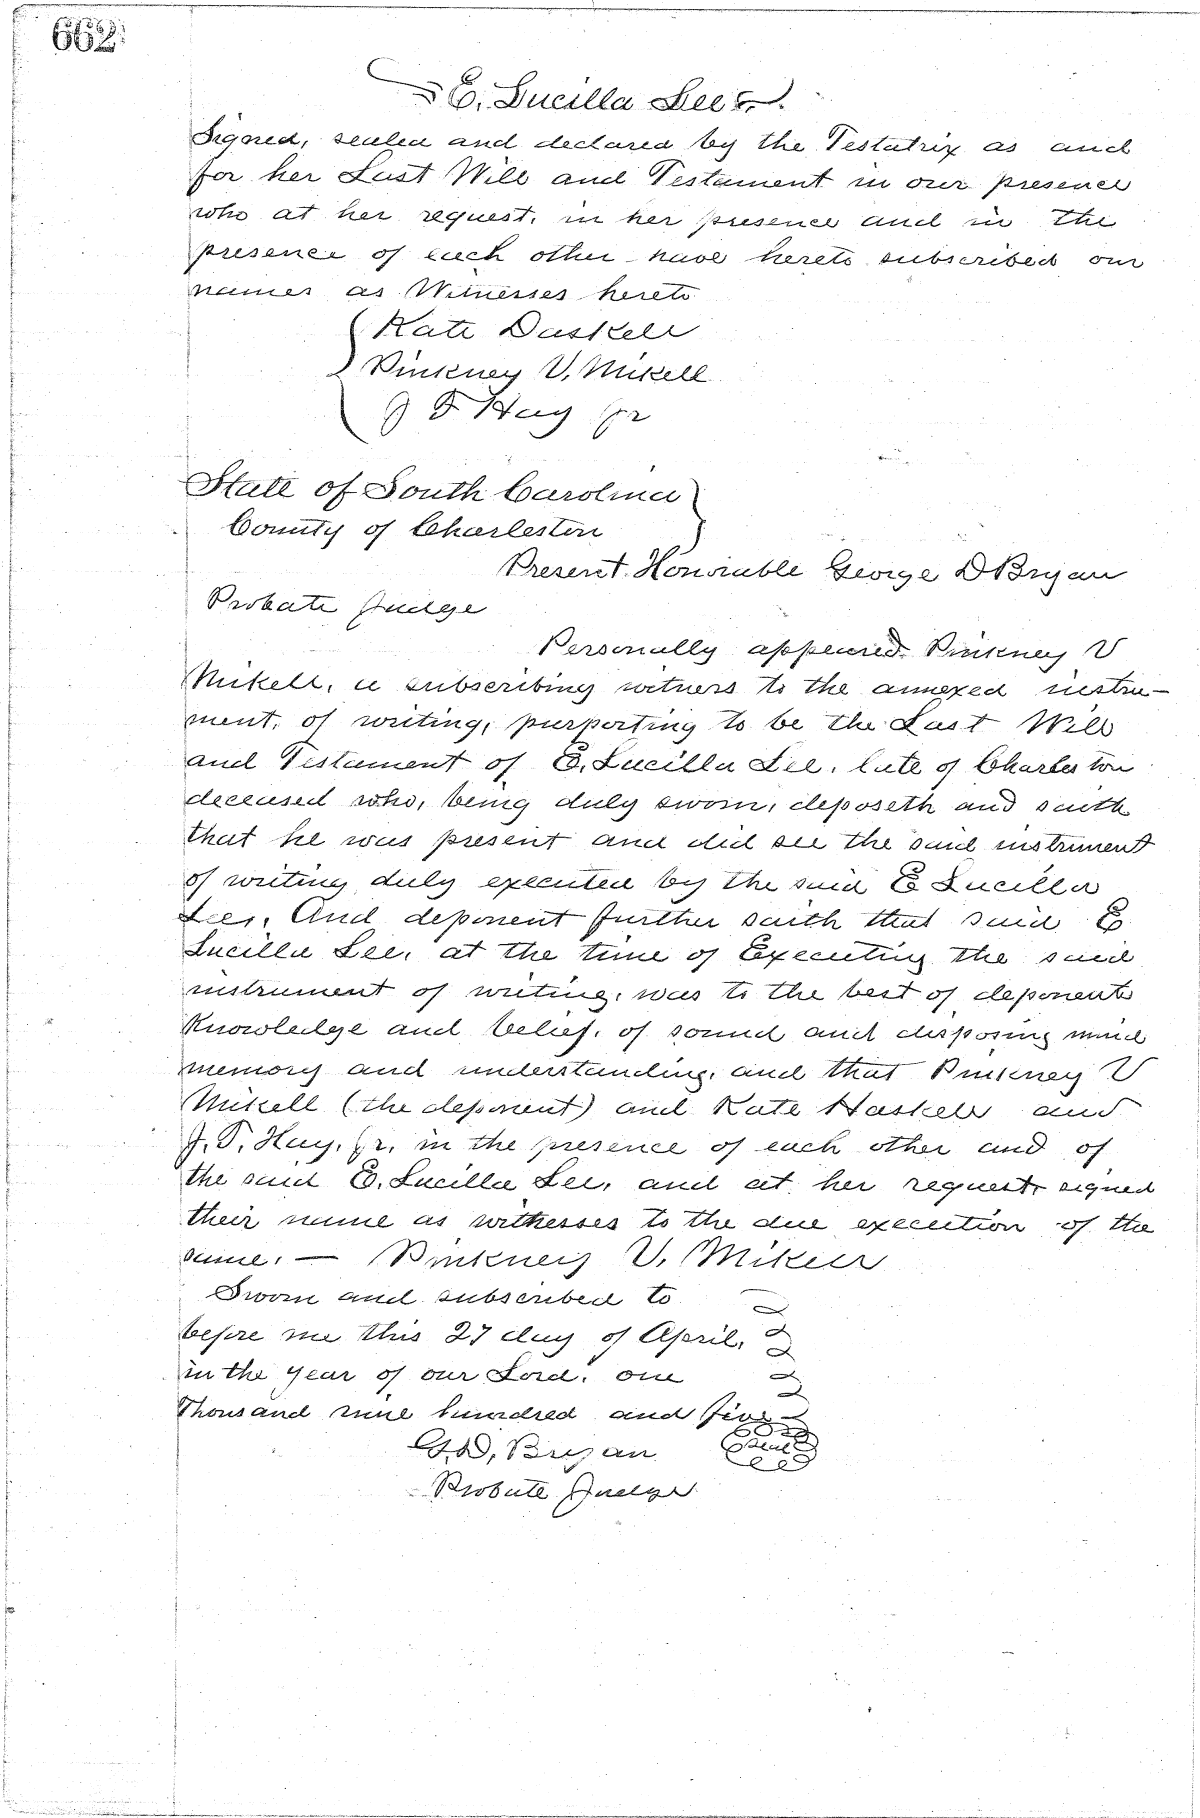 662
E. Lucilla Lee
Signed, sealed and declared by the Testatrix as and
for her Last Will and Testament in our presence
who at her request, in her presence and in the
presence of each other have hereto subscribed our
names as Witnesses hereto
Kate Daskell
Pinkney V. Mikell
J T Hay Jr
State of South Carolina
County of Charleston
Present Honorable George D Bryan
Probate Judge
Personally appeared Pinkney V
Mikell, a subscribing witness to the annexed instru-
ment, of writing, purporting to be the Last Will
and Testament of E. Lucilla Lee, late of Charleston
deceased who, being duly sworn, deposeth and saith
that he was present and did see the said instrument
of writing duly executed by the said E Lucilla
Lee, And deponent further saith that said E
Lucilla Lee, at the time of Executing the said
instrument of writing, was to the best of deponents
Knowledge and belief, of sound and disposing mind
memory and understanding, and that Pinkney V
Mikell (the deponent) and Kate Haskell and
J. T. Hay, Jr, in the presence of each other and of
the said E. Lucilla Lee, and at her request, signed
their name as witnesses to the due execution of the
same. — Pinkney V. Mikell
Sworn and subscribed to
before me this 27 day of April,
in the year of our Lord, one
Thousand nine hundred and five
G. D. Bryan Seal
Probate Judge